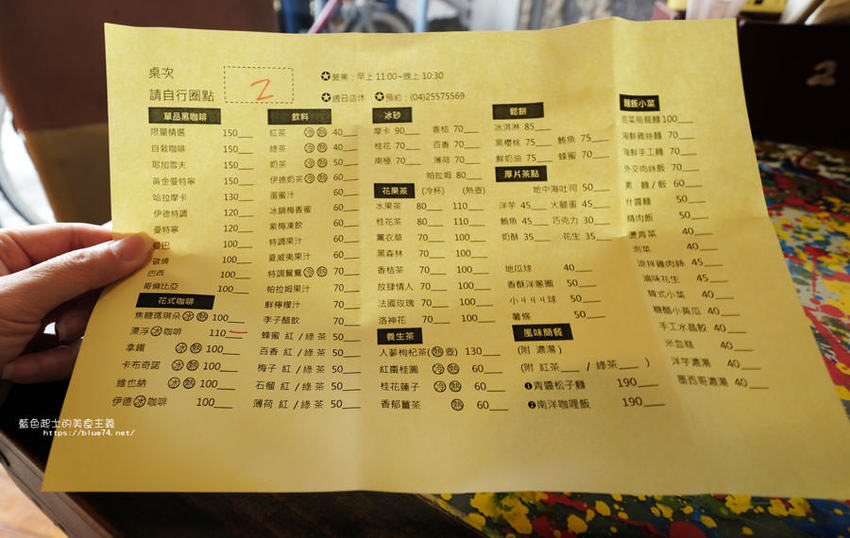 桌次
2
✪營業：早上 11:00~晚上 10:30
請自行圈點
✪週日店休 ✪預約：(04)25575569
單品黑咖啡
限量精選 150
自栽咖啡 150
耶加雪夫 150
黃金曼特寧 150
哈拉摩卡 130
伊德特調 120
曼特寧 120
曼巴 100
100
巴西 100
哥倫比亞 100
花式咖啡
焦糖瑪琪朵 冰 熱 100
漂浮 冰 咖啡 110
拿鐵 冰 熱 100
卡布奇諾 冰 熱 100
維也納 冰 熱 100
伊德 冰 咖啡 100
飲料
紅茶 冰 熱 40
綠茶 冰 熱 40
奶茶 冰 熱 50
伊德奶茶 冰 熱 60
蛋蜜汁 60
冰鎮梅香蜜 60
紫梅凍飲 60
特調果汁 60
夏威夷果汁 60
特調鴛鴦 冰 熱 70
帕拉姆果汁 70
鮮檸檬汁 70
李子醋飲 70
蜂蜜 紅 / 綠 茶 50
百香 紅 / 綠 茶 50
梅子 紅 / 綠 茶 50
石榴 紅 / 綠 茶 50
薄荷 紅 / 綠 茶 50
冰砂
摩卡 90 香桔 70
桂花 70 百香 70
南極 70 薄荷 70
帕拉姆 80
花果茶 (冷杯) (熱壺)
水果茶 80 110
桂花茶 80 110
薰衣草 70 100
黑森林 70 100
香桔茶 70 100
放肆情人 70 100
法國玫瑰 70 100
洛神花 70 100
養生茶
人蔘枸杞茶(熱壺) 130
紅棗桂圓 冰 熱 60
桂花蓮子 冰 熱 60
香郁薑茶 熱 60
鬆餅
冰淇淋 85
黑櫻桃 75 鮪魚 75
鮮奶油 75 蜂蜜 70
厚片茶點
地中海吐司 50
洋芋 45 火腿蛋 45
鮪魚 45 巧克力 30
奶酥 35 花生 35
地瓜球 40
香酥洋蔥圈 50
小ㄐㄐㄐ球 50
薯條 50
風味簡餐
(附 濃湯)
(附 紅茶 / 綠茶 )
❶青醬松子麵 190
❷南洋咖哩飯 190
麵飯小菜
100
海鮮雞絲麵 70
海鮮手工麵 70
外交肉絲飯 70
素 麵 / 飯 60
什醬麵 50
精肉飯 50
燙青菜 40
泡菜 40
涼拌雞肉絲 45
滷味花生 45
韓式小菜 40
糖醋小黃瓜 40
手工水晶餃 40
米血糕 40
洋芋濃湯 40
墨西哥濃湯 40
2
藍色起士的美食主義
https://blue74.net/